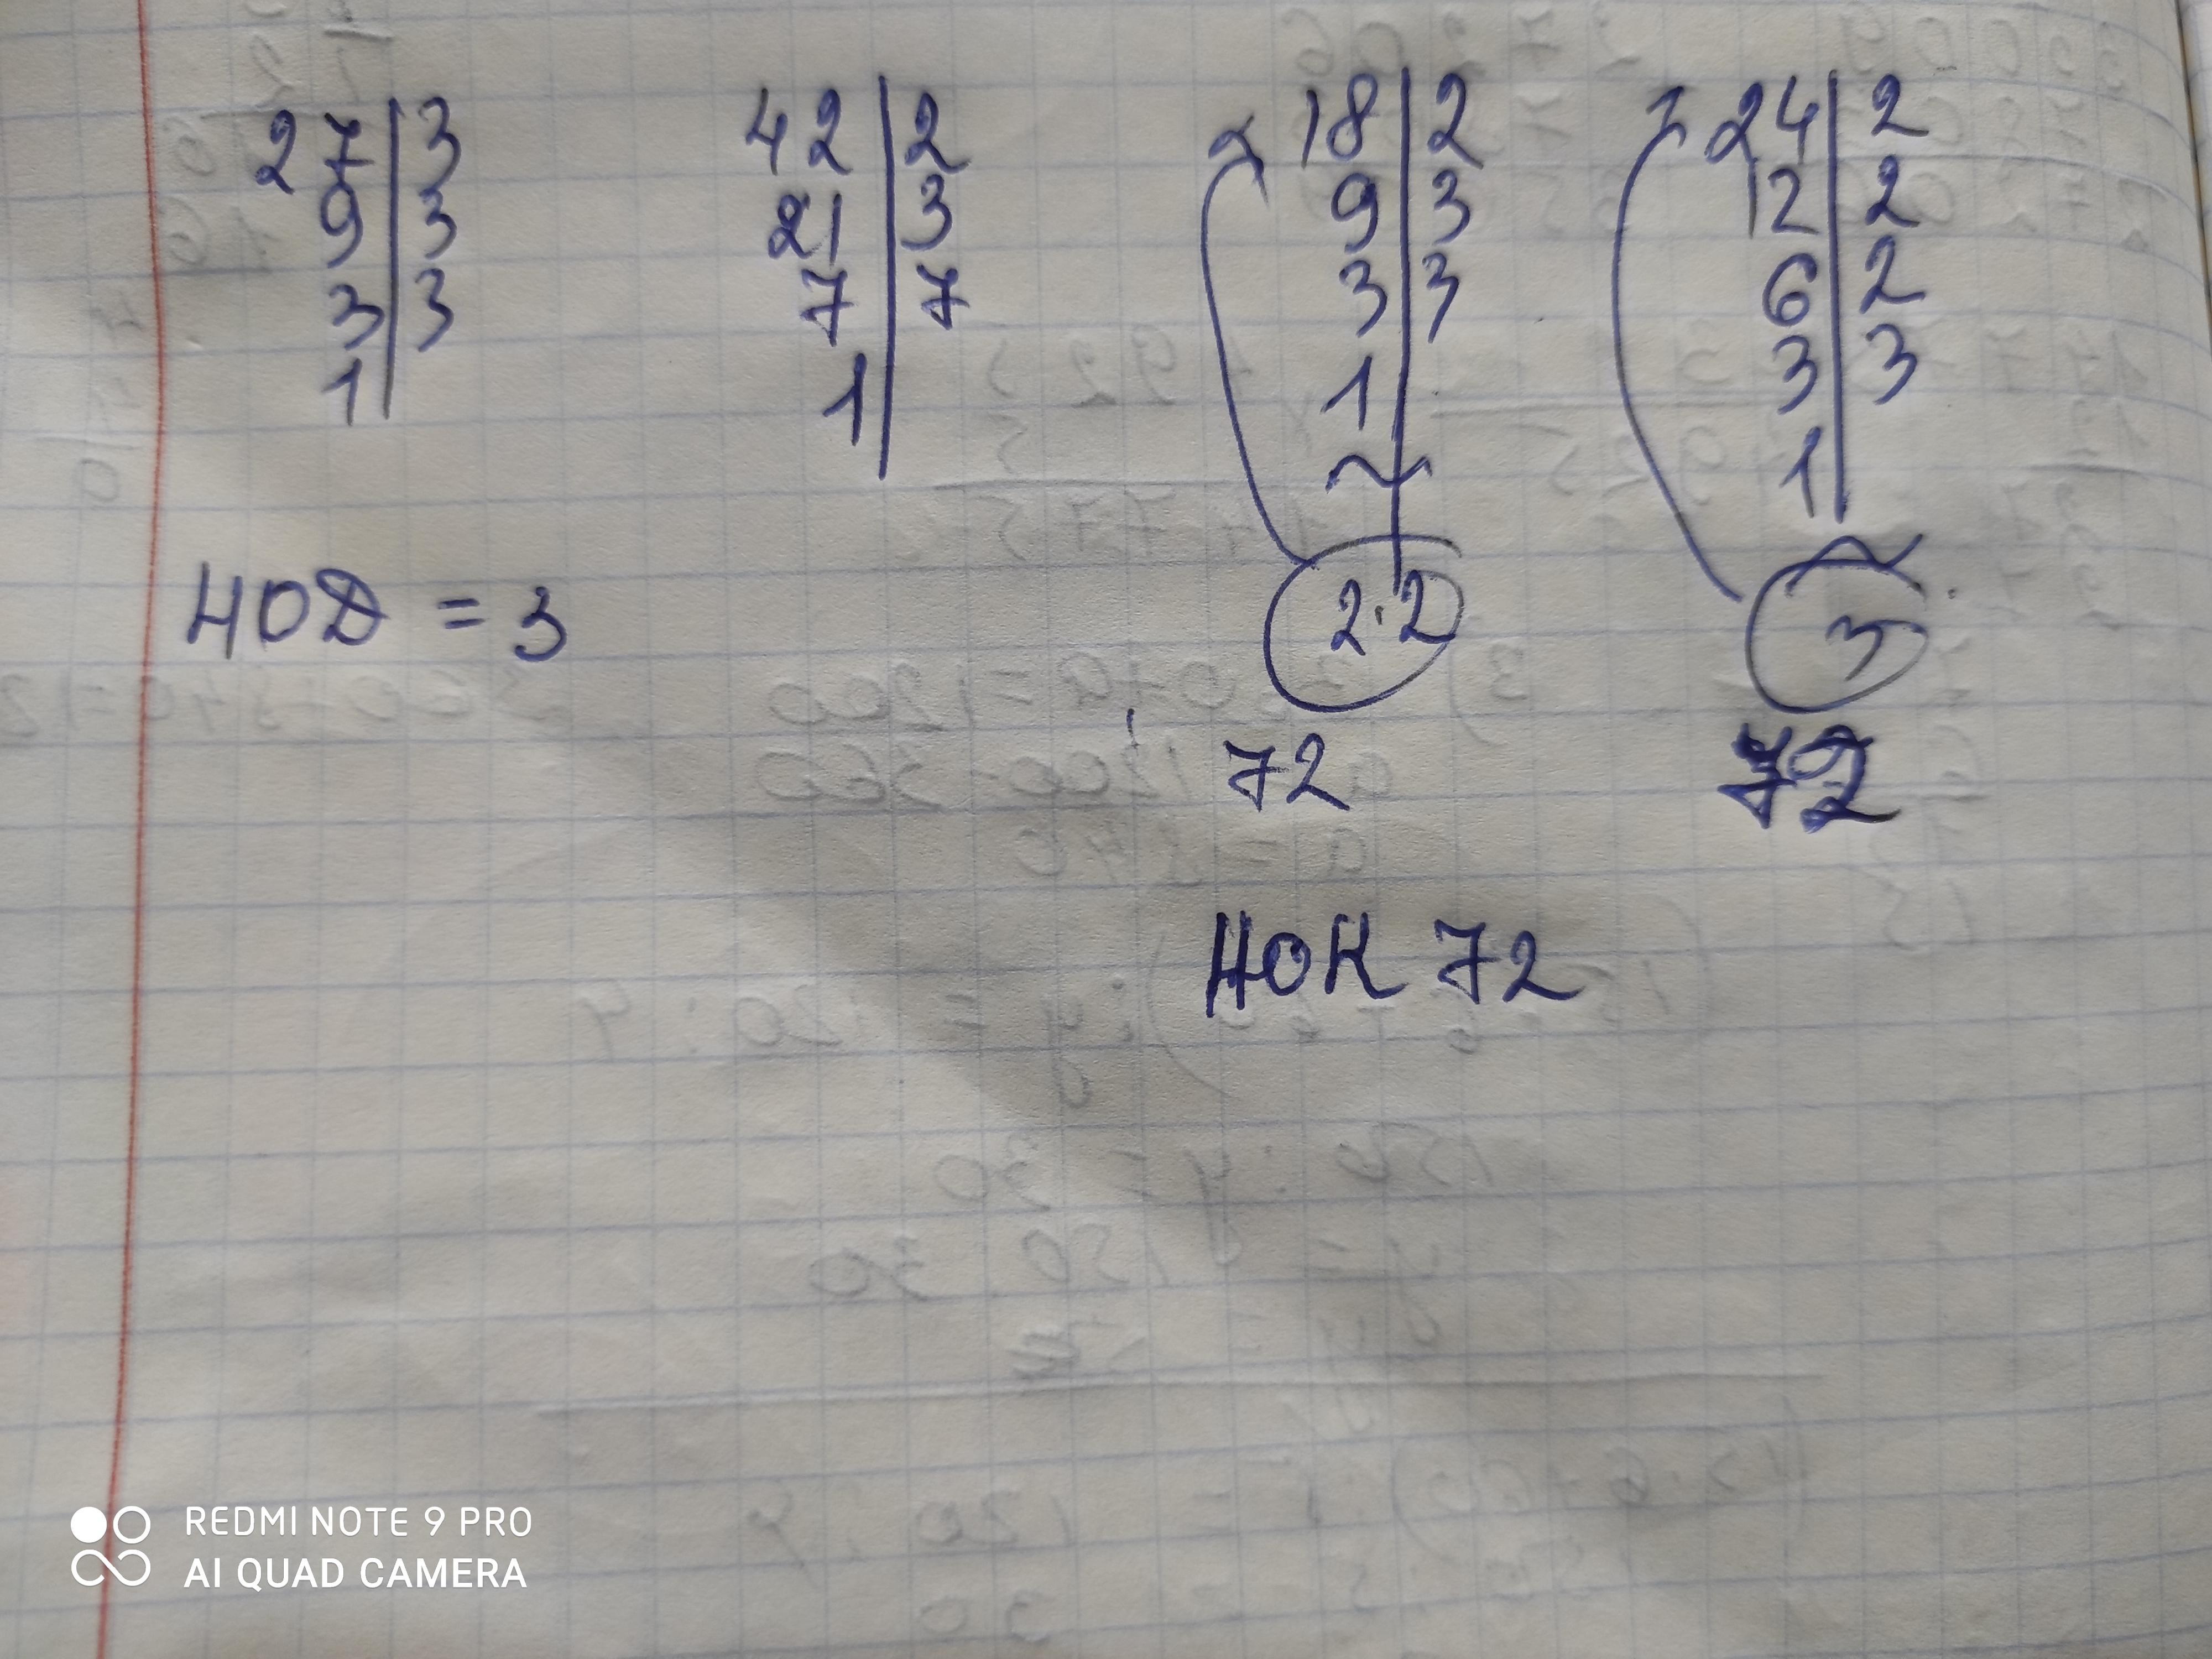 27 | 3 42 | 2 18 | 2 24 | 2
9 | 3 21 | 3 9 | 3 12 | 2
3 | 3 7 | 7 3 | 3 6 | 2
1 1 1 3 | 3
1
НОД = 3 2·2 3
72 72
НОК 72
REDMI NOTE 9 PRO
AI QUAD CAMERA